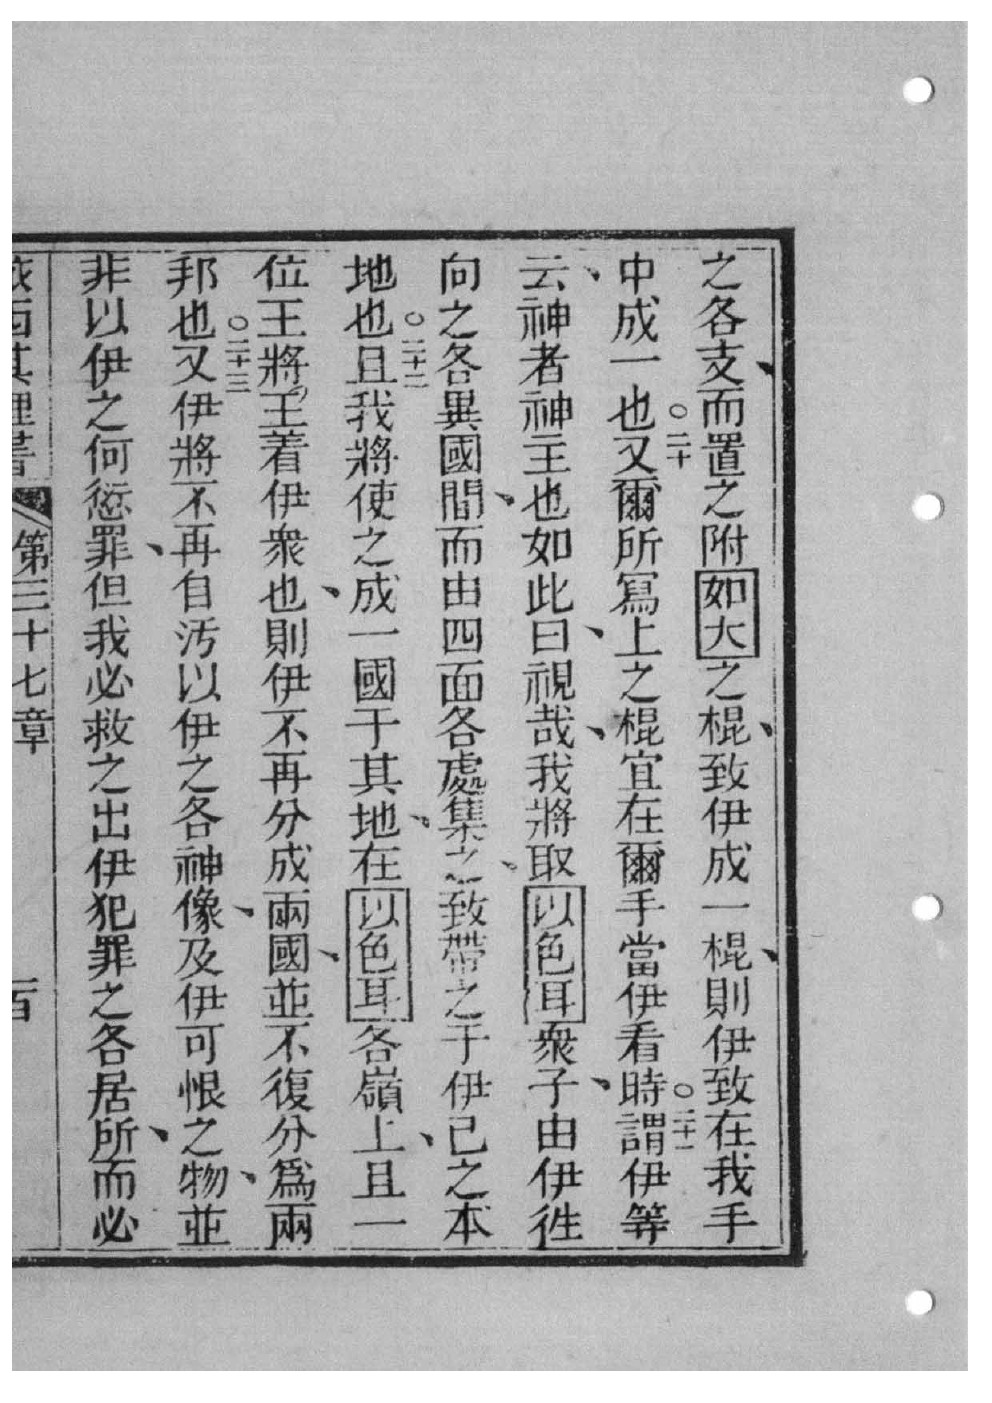 之各支而置之附如大之棍致伊成一棍則伊致在我手
中成一也○二十又爾所寫上之棍宜在爾手當伊看時○二十一謂伊等
云神者神主也如此曰視哉我將取以色耳衆子由伊徃
向之各異國間而由四面各處集之致帶之于伊已之本
地也○二十二且我將使之成一國于其地在以色耳各嶺上且一
位王將王着伊衆也則伊不再分成兩國並不復分爲兩
邦也○二十三又伊將不再自汚以伊之各神像及伊可恨之物並
非以伊之何愆罪但我必救之出伊犯罪之各居所而必
依西其理書 第三十七章 一百